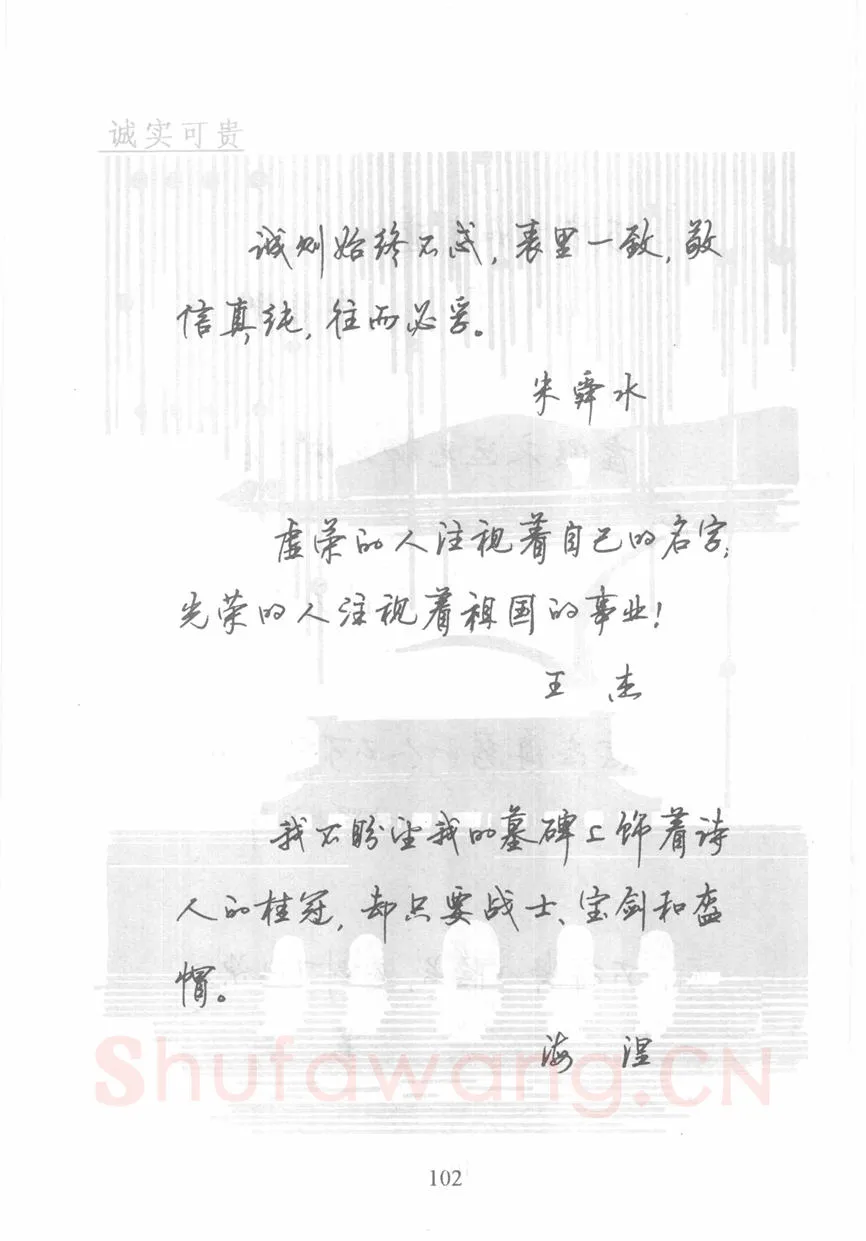 诚实可贵
诚则始终不忒，表里一致，敬
信真纯，往而必孚。
朱舜水
虚荣的人注视着自己的名字，
光荣的人注视着祖国的事业！
王 杰
我不盼望我的墓碑上饰着诗
人的桂冠，却只要战士、宝剑和盔
帽。
海 涅
Shufawang.CN
102